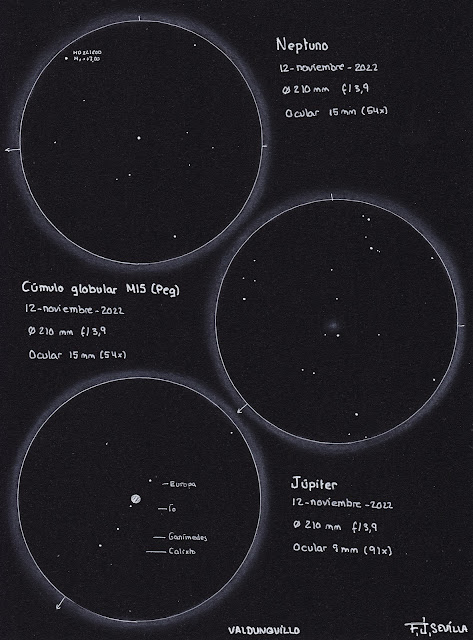 HD 221200
Neptuno
12-noviembre-2022
Ø 210 mm f/3,9
Ocular 15 mm (54x)
Cúmulo globular M15 (Peg)
12-noviembre-2022
Ø 210 mm f/3,9
Ocular 15 mm (54x)
Europa
Io
Ganímedes
Calixto
Júpiter
12-noviembre-2022
Ø 210 mm f/3,9
Ocular 9 mm (91x)
VALDUNQUILLO
F.J. SEVILLA